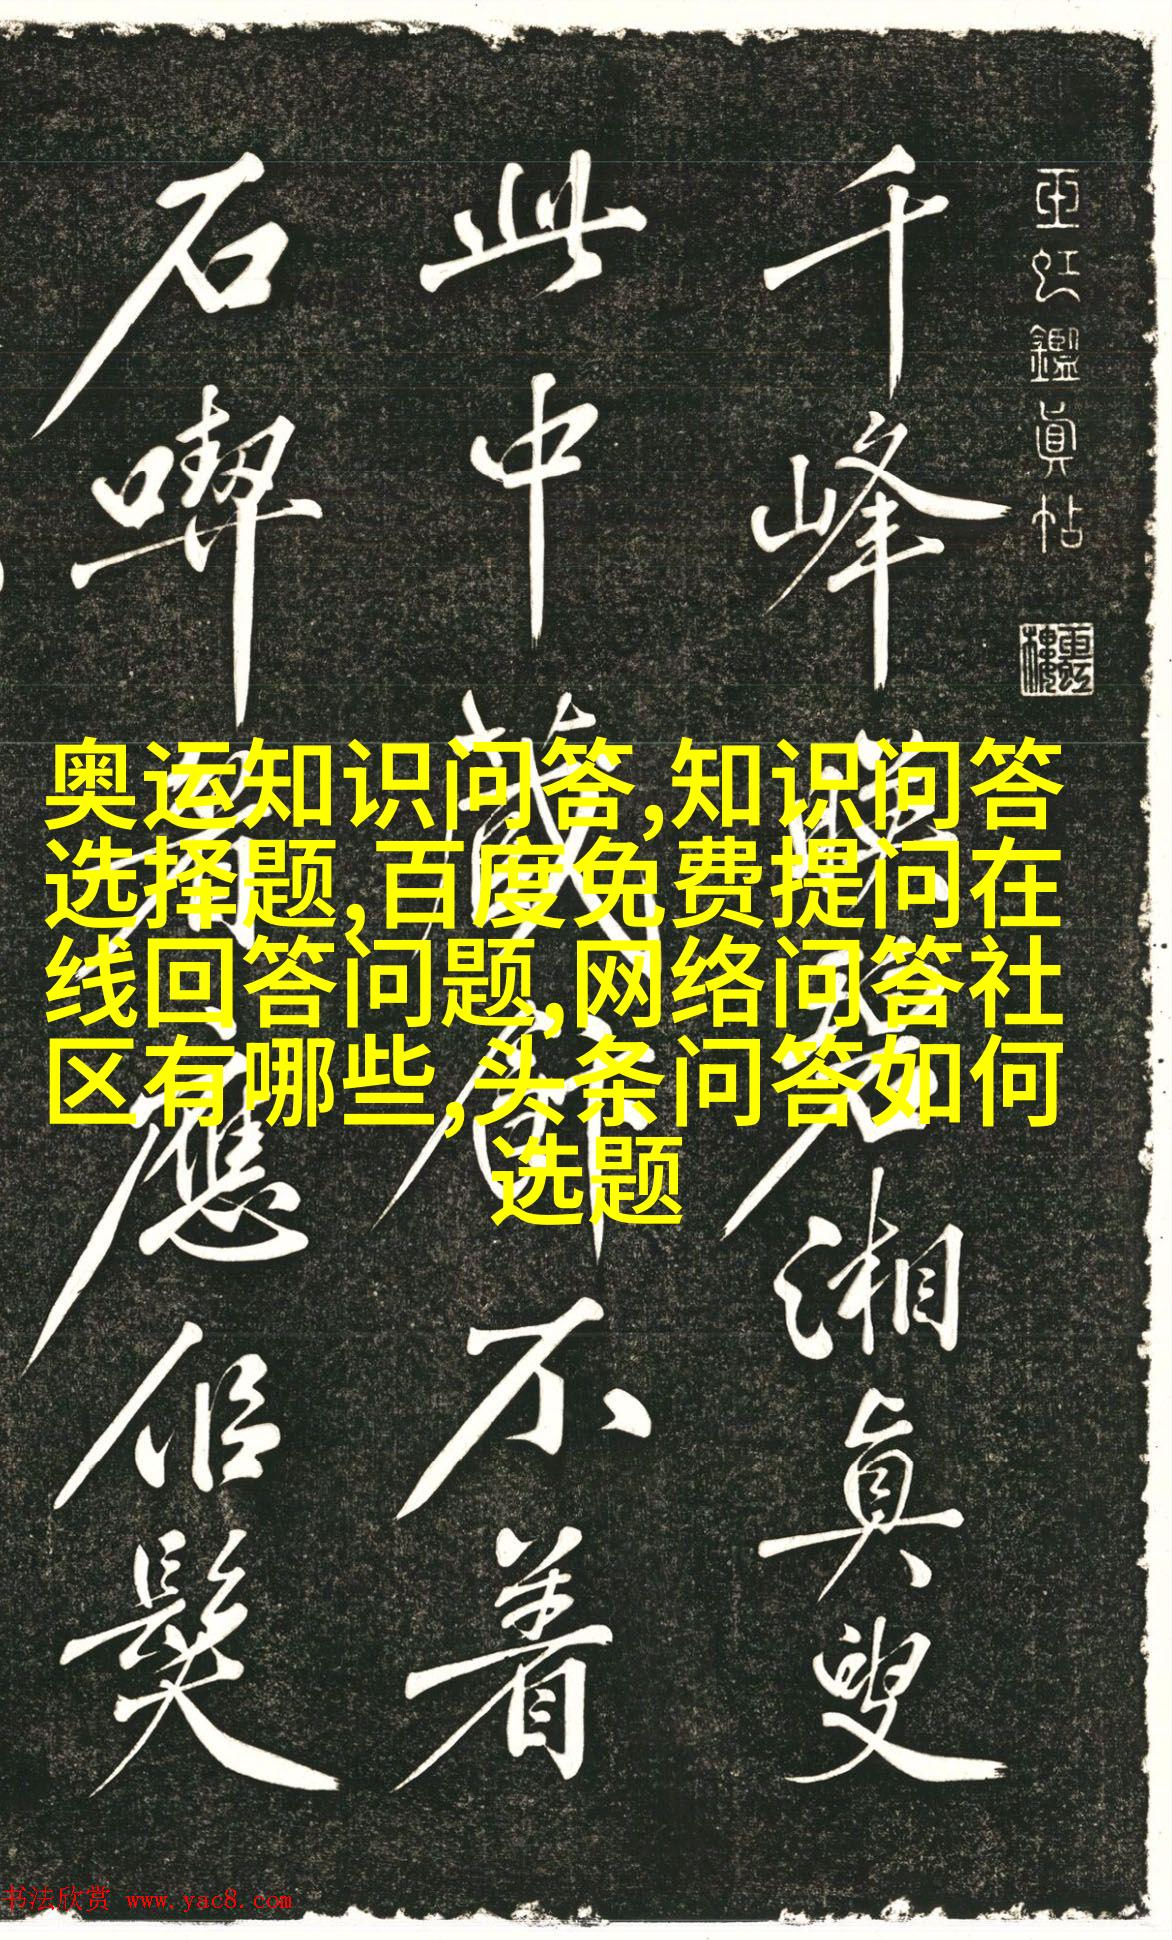 亚虹鑑真帖
千峰映碧湘真叟
此中藏不着
石㗫应伯髮
奥运知识问答,知识问答
选择题,百度免费提问在
线回答问题,网络问答社
区有哪些,头条问答如何
选题
书法欣赏 www.yac8.com